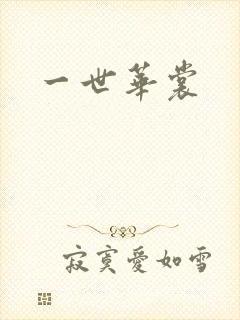 一世華裳
寂寞愛如雪